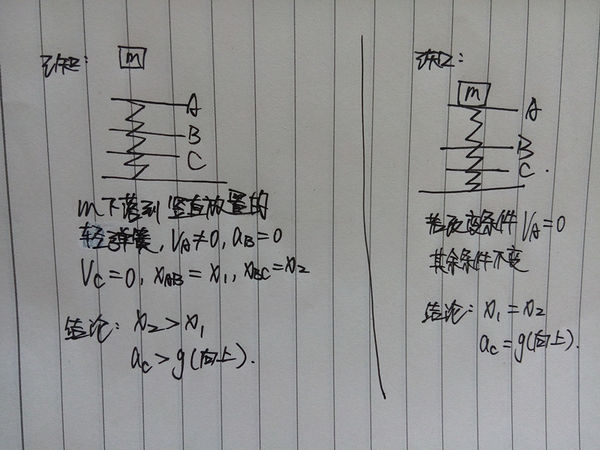 m
A
B
C
m下落到竖直放置的
轻弹簧,VA≠0,aB=0
VC=0,xAB=x1,xBC=x2
结论: x2>x1
aC>g(向上).
m
A
B
C.
若改变条件VA=0
其余条件不变
结论: x1=x2
aC=g(向上).